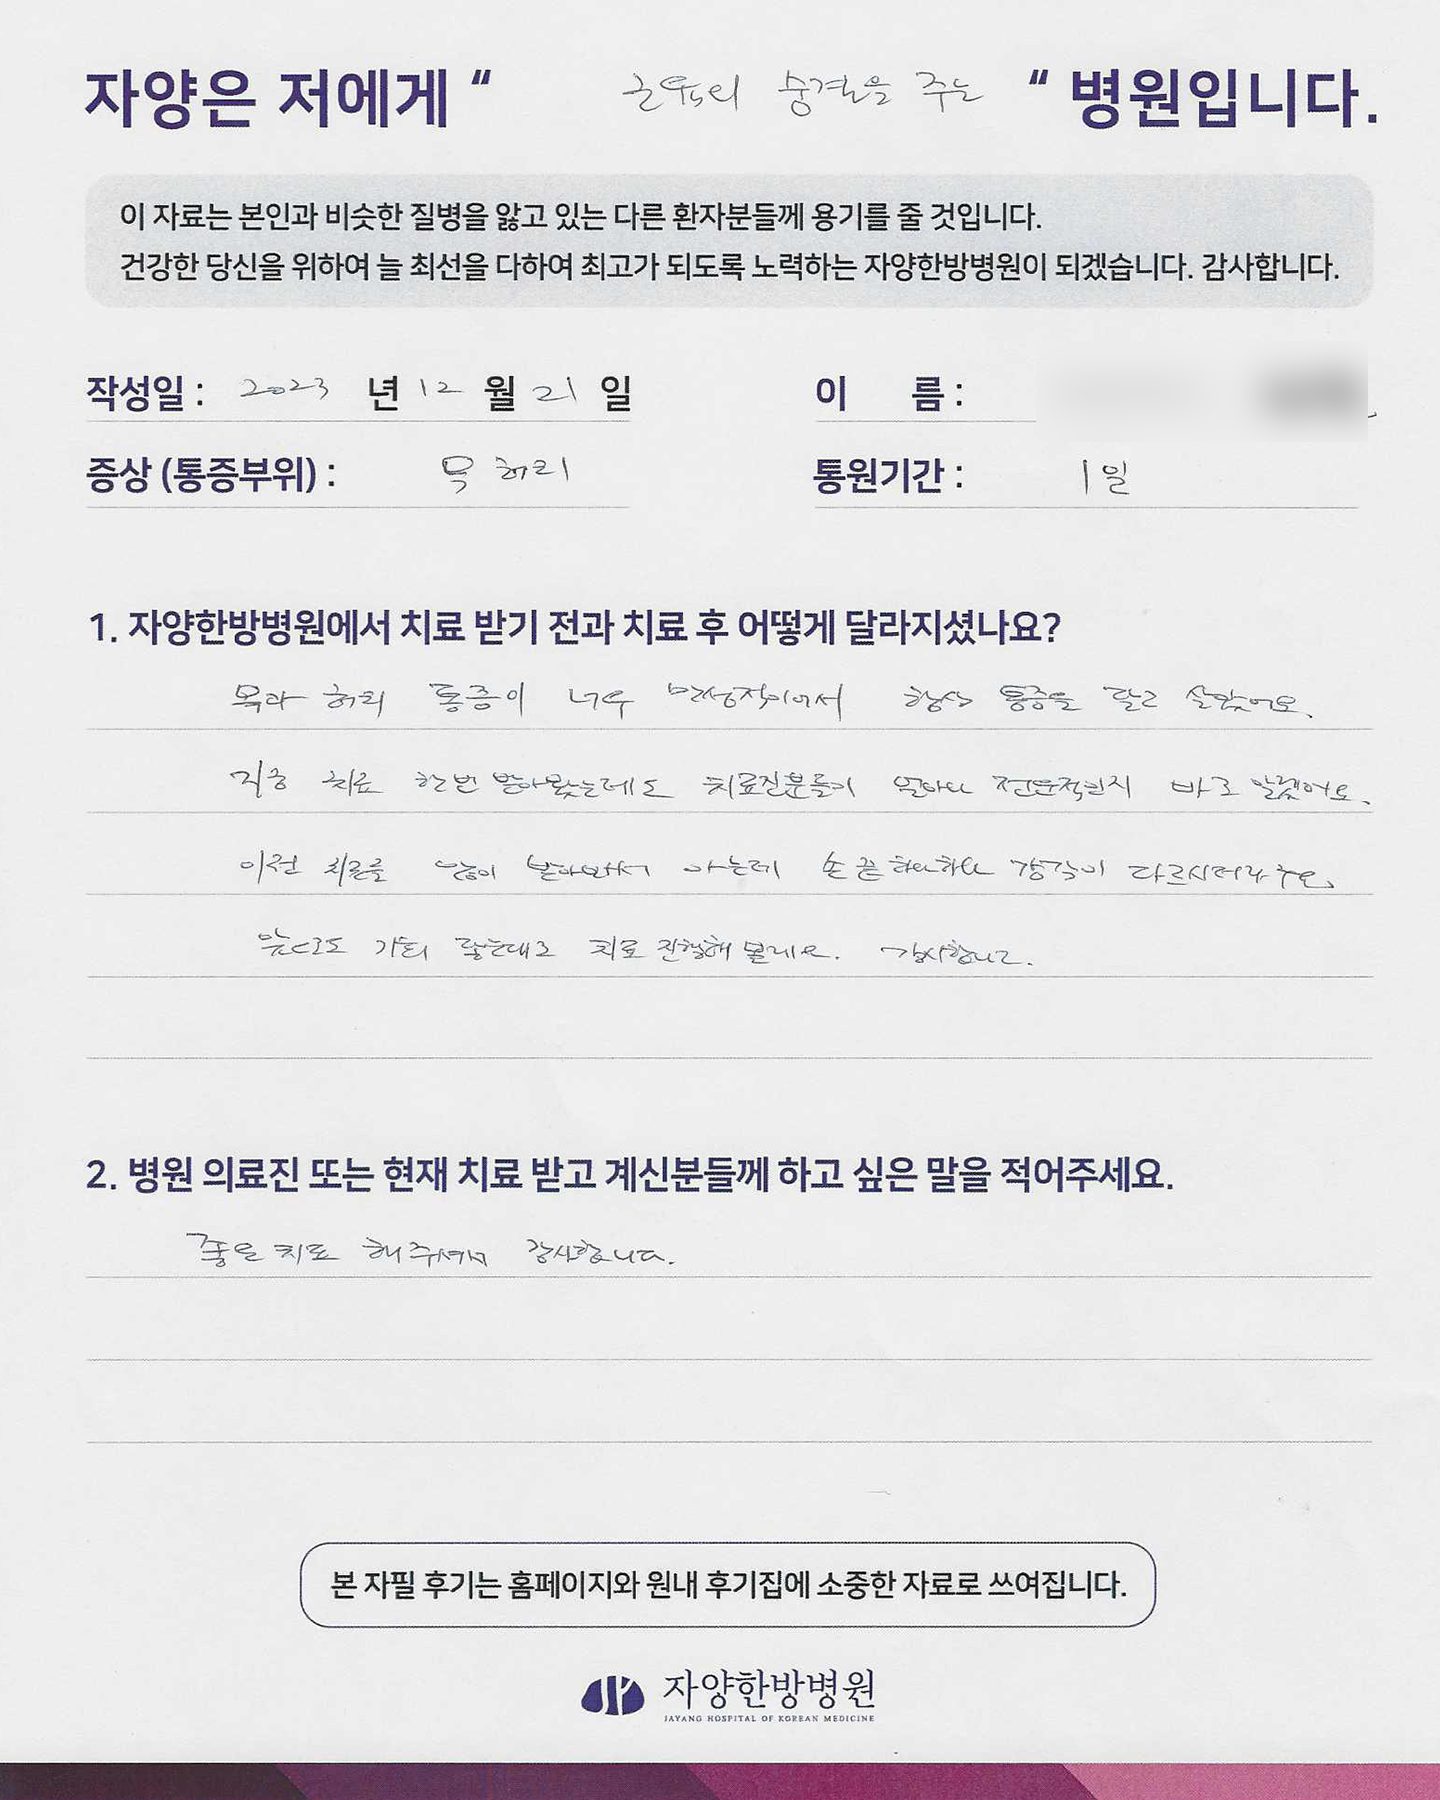 자양은 저에게 “ 근육의 숨결을 주는 “ 병원입니다.
이 자료는 본인과 비슷한 질병을 앓고 있는 다른 환자분들께 용기를 줄 것입니다.
건강한 당신을 위하여 늘 최선을 다하여 최고가 되도록 노력하는 자양한방병원이 되겠습니다. 감사합니다.
작성일 : 2023 년 12 월 21 일 이 름 :
증상 (통증부위) : 목 허리 통원기간 : 1일
1. 자양한방병원에서 치료 받기 전과 치료 후 어떻게 달라지셨나요?
목과 허리 통증이 너무 만성적이어서 항상 통증을 달고 살았어요.
지금 치료 한번 받아봤는데도 치료진분들이 얼마나 전문적인지 바로 알겠어요.
이전 치료를 많이 받아봐서 아는데 손끝 하나하나 감각이 다르시더라구요.
앞으로도 가화 치료 진행해 볼래요. 감사합니다.
2. 병원 의료진 또는 현재 치료 받고 계신분들께 하고 싶은 말을 적어주세요.
좋은 치료 해주셔서 감사합니다.
본 자필 후기는 홈페이지와 원내 후기집에 소중한 자료로 쓰여집니다.
자양한방병원
JAYANG HOSPITAL OF KOREAN MEDICINE